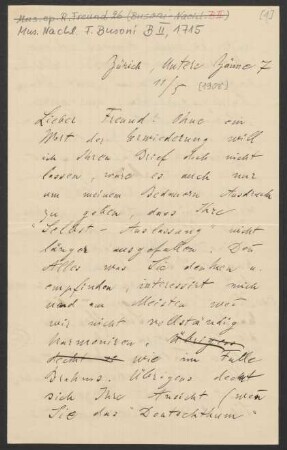 Mus. ep. R. Freund 36 (Busoni-Nachl. B II) [1]
Mus. Nachl. F. Busoni B II, 1715
Zürich, Untere Zäune 7
11/5 [1908]
Lieber Freund! Ohne ein
Wort der Erwiederung will
ich Ihren Brief doch nicht
lassen, wäre es auch nur
um meinem Bedauern Ausdruck
zu geben, dass Ihre
"Selbst-Auslassung" nicht
länger ausgefallen. Denn
Alles was Sie denken u.
empfinden, interessirt mich
und am Meisten wo
wir nicht vollständig
harmoniren. Übrigens
deckt wie im Falle
Brahms. Übrigens deckt
sich Ihre Ansicht (wenn
Sie das "Deutschthum"